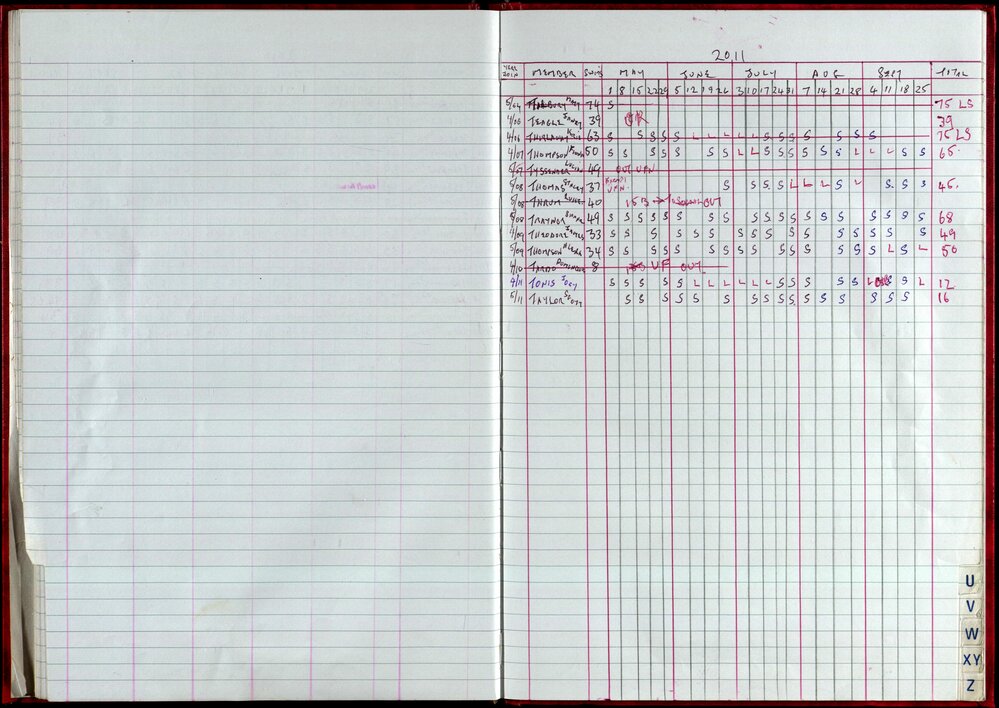 2011
YEAR JOIN MEMBER SWIMS MAY JUNE JULY AUG SEPT TOTAL
1 8 15 22 29 5 12 19 26 3 10 17 24 31 7 14 21 28 4 11 18 25
5/04 74 S 75 LS
4/06 TEAGLE JAMES 39 39
4/06 63 S S S S S L L L L L S S S S S S S 75 LS
4/07 THOMPSON 50 S S S S S S S L L S S S S S S L L L S S 65
5/07 49 OUT UFN
5/08 THOMAS STACEY 37 UFN S S S S L L L S L S S S 45
5/08 THROM 40 153 OUT
5/08 TRAYNOR SHANE 49 S S S S S S S S S S S S S S S S S S S S 68
4/09 THEODORE JAMES 33 S S S S S S S S S S S S S S S S 49
5/09 THOMPSON 34 S S S S S S S S S S S S S S S L S L 50
4/10 TARDO DOMINIQUE 8 UF OUT
4/11 TONIS JOEY S S S S S L L L L L S S S S S L S L 12
5/11 TAYLOR SCOTT S S S S S S S S S S S S S S S 16
U
V
W
XY
Z